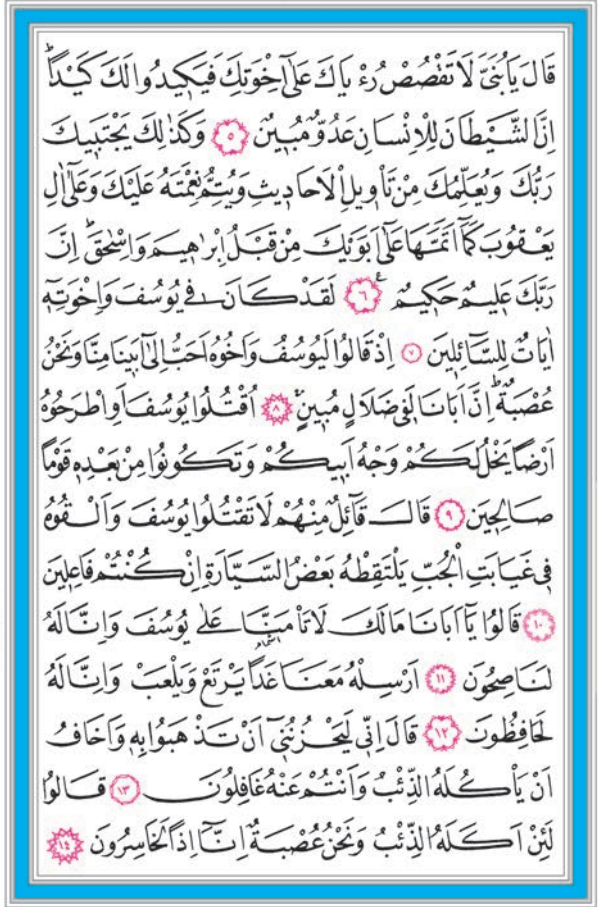 قَالَ يَابُنَيَّ لَا تَقْصُصْ رُءْيَاكَ عَلٰٓى اِخْوَتِكَ فَيَكِيدُوا لَكَ كَيْدًاۜ
اِنَّ الشَّيْطَانَ لِلْاِنْسَانِ عَدُوٌّ مُبِينٌ ﴿٥﴾ وَكَذٰلِكَ يَجْتَبِيكَ
رَبُّكَ وَيُعَلِّمُكَ مِنْ تَأْوِيلِ الْاَحَادِيثِ وَيُتِمُّ نِعْمَتَهُ عَلَيْكَ وَعَلٰٓى اٰلِ
يَعْقُوبَ كَمَٓا اَتَمَّهَا عَلٰٓى اَبَوَيْكَ مِنْ قَبْلُ اِبْرٰهِيمَ وَاِسْحٰقَۜ اِنَّ
رَبَّكَ عَلِيمٌ حَكِيمٌ ﴿٦﴾ لَقَدْ كَانَ فِي يُوسُفَ وَاِخْوَتِهِٓ
اٰيَاتٌ لِلسَّٓائِلِينَ ﴿٧﴾ اِذْ قَالُوا لَيُوسُفُ وَاَخُوهُ اَحَبُّ اِلٰٓى اَبِينَا مِنَّا وَنَحْنُ
عُصْبَةٌۜ اِنَّ اَبَانَا لَفِي ضَلَالٍ مُبِينٍۚ ﴿٨﴾ اُقْتُلُوا يُوسُفَ اَوِ اطْرَحُوهُ
اَرْضًا يَخْلُ لَكُمْ وَجْهُ اَبِيكُمْ وَتَكُونُوا مِنْ بَعْدِهِ قَوْمًا
صَالِحِينَ ﴿٩﴾ قَالَ قَٓائِلٌ مِنْهُمْ لَا تَقْتُلُوا يُوسُفَ وَاَلْقُوهُ
فِي غَيَابَتِ الْجُبِّ يَلْتَقِطْهُ بَعْضُ السَّيَّارَةِ اِنْ كُنْتُمْ فَاعِلِينَ
﴿١٠﴾ قَالُوا يَٓا اَبَانَا مَالَكَ لَا تَأْمَنَّا عَلٰى يُوسُفَ وَاِنَّا لَهُ
لَنَاصِحُونَ ﴿١١﴾ اَرْسِلْهُ مَعَنَا غَدًا يَرْتَعْ وَيَلْعَبْ وَاِنَّا لَهُ
لَحَافِظُونَ ﴿١٢﴾ قَالَ اِنِّي لَيَحْزُنُنِٓي اَنْ تَذْهَبُوا بِهِ وَاَخَافُ
اَنْ يَأْكُلَهُ الذِّئْبُ وَاَنْتُمْ عَنْهُ غَافِلُونَ ﴿١٣﴾ قَالُوا
لَئِنْ اَكَلَهُ الذِّئْبُ وَنَحْنُ عُصْبَةٌ اِنَّٓا اِذًا لَخَاسِرُونَ ﴿١٤﴾